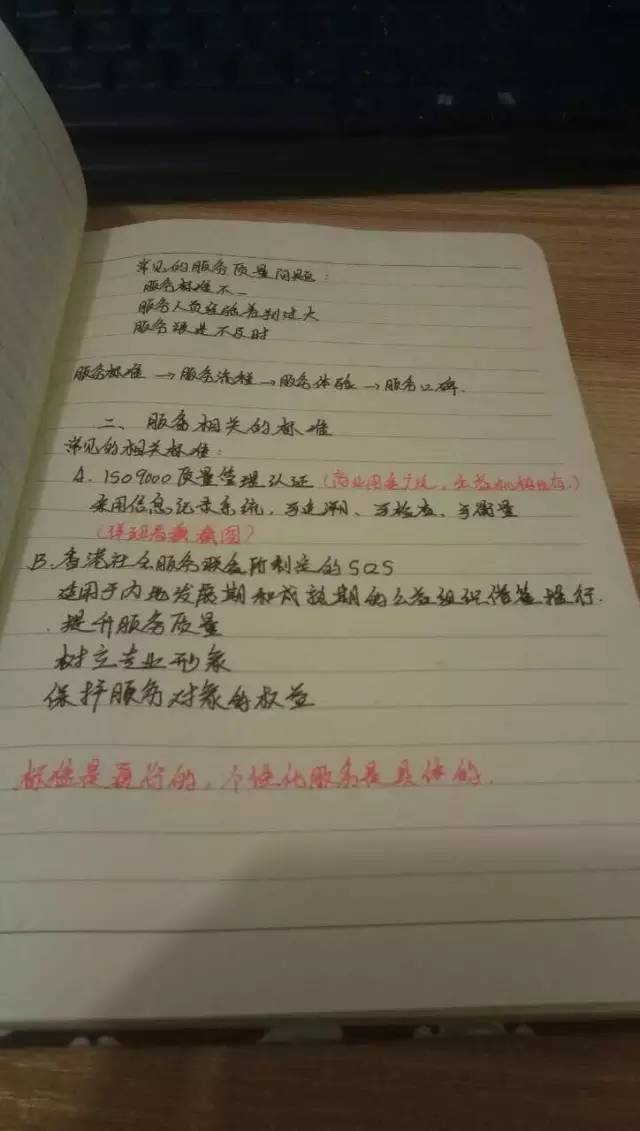 常见的服务质量问题：
服务标准不一
服务人员经验差别过大
服务跟进不及时
服务标准→服务流程→服务体验→服务口碑.
二、服务相关的标准
常见的相关标准：
A. ISO9000质量管理认证（商业用途广泛，公益机构也有.）
采用信息记录系统，可追溯、可检查、可衡量
（详见 图）
B.香港社会服务联会所制定的SQS
适用于内地发展期和成熟期的公益组织借鉴推行.
.提升服务质量
树立专业形象
保护服务对象的权益
标准是 的，个性化服务是具体的.